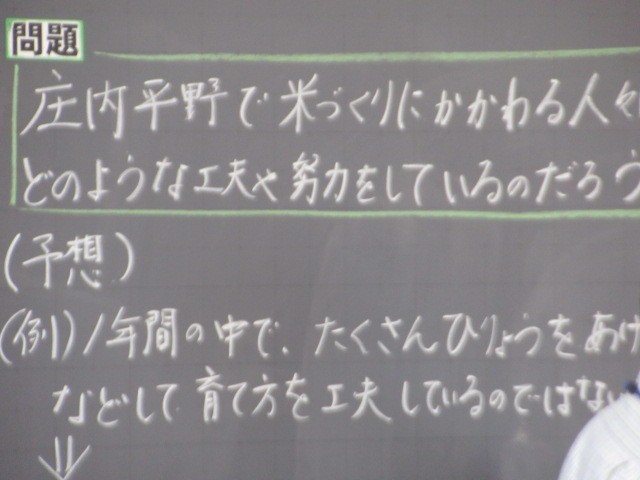 問題
庄内平野で米づくりにかかわる人々
どのような工夫や努力をしているのだろう
(予想)
(例)1年間の中で、たくさんひりょうをあげ
などして育て方を工夫しているのではな
⇓